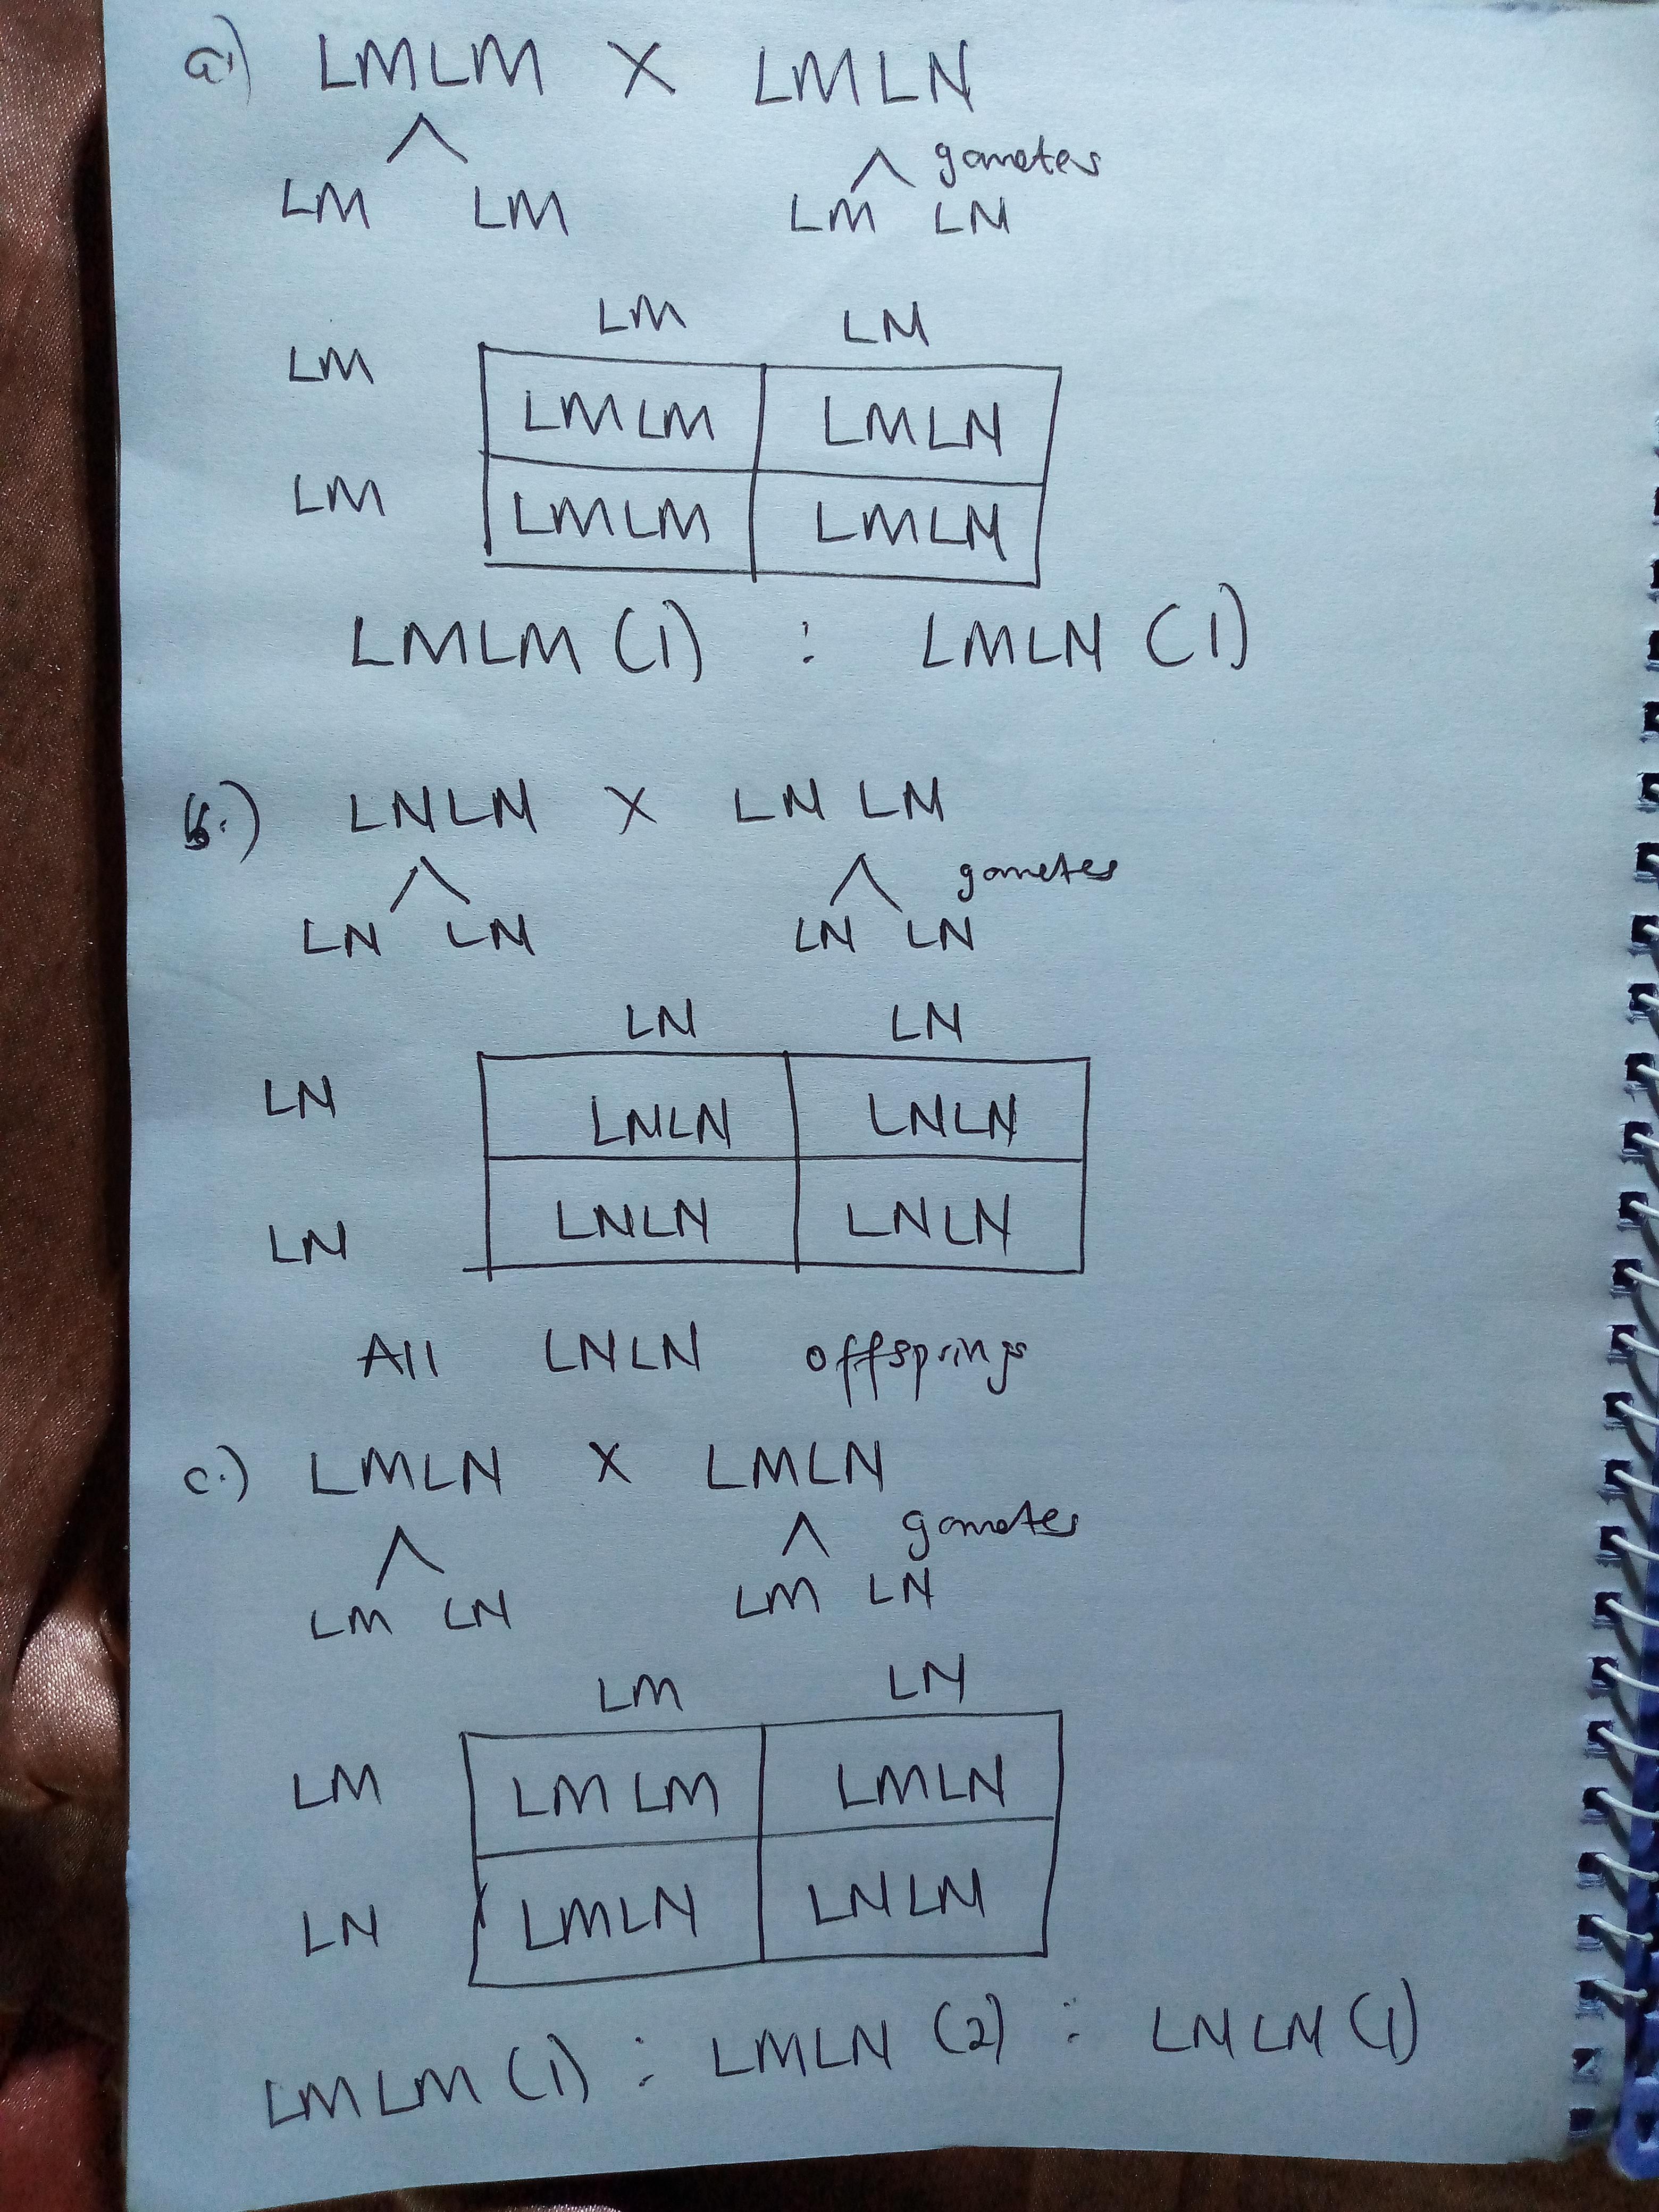 a) LMLM X LMLN
gametes
LM LM LM LN
LM LN
LM
LMLM LMLN
LM
LMLM LMLN
LMLM (1) : LMLN (1)
b.) LNLN X LN LN
gametes
LN LN LN LN
LN LN
LN
LNLN LNLN
LN
LNLN LNLN
All LNLN offsprings
c.) LMLN X LMLN
gametes
LM LN LM LN
LM LN
LM
LM LM LMLN
LN
LMLN LNLN
LMLM (1) : LMLN (2) : LNLN (1)